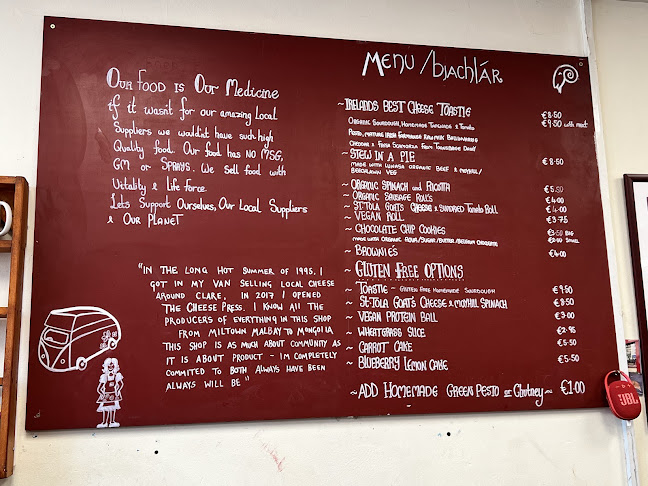 OUR FOOD IS OUR MEDICINE
if it wasn't for our amazing Local
Suppliers we wouldn't have such high
Quality food. Our food has NO MSG,
GM or SPRAYS. We sell food with
Vitality & life force.
Lets Support Ourselves, Our Local Suppliers
& OUR PLANET
"IN THE LONG HOT SUMMER OF 1995. I
GOT IN MY VAN SELLING LOCAL CHEESE
AROUND CLARE. IN 2017 I OPENED
THE CHEESE PRESS. I KNOW ALL THE
PRODUCERS OF EVERYTHING IN THIS SHOP
FROM MILTOWN MALBAY TO MONGOLIA
THIS SHOP IS AS MUCH ABOUT COMMUNITY AS
IT IS ABOUT PRODUCT - I'M COMPLETELY
COMMITED TO BOTH ALWAYS HAVE BEEN
ALWAYS WILL BE"
MENU /biachlár
~ IRELANDS BEST CHEESE TOASTIE €8.50
ORGANIC SOURDOUGH, HOMEMADE & TOMATO €9.50 with meat
PESTO, MATURE IRISH FARMHOUSE RAW MILK
CHEDDAR & FROM
~ STEW IN A PIE €8.50
MADE WITH ORGANIC BEEF &
VEG
~ ORGANIC SPINACH and RICOTTA €5.50
~ ORGANIC SAUSAGE ROLLS €4.00
~ ST.TOLA GOATS CHEESE & SUNDRIED TOMATO ROLL €4.00
~ VEGAN ROLL €3.75
~ CHOCOLATE CHIP COOKIES €3.50 BIG
MADE WITH ORGANIC FLOUR/SUGAR/BUTTER/BELGIAN CHOCOLATE SMALL
~ BROWNIE'S €4.00
~ GLUTEN FREE OPTIONS
~ TOASTIE - GLUTEN FREE HOMEMADE SOURDOUGH €9.50
~ ST.TOLA GOAT'S CHEESE & MOYHILL SPINACH €9.50
~ VEGAN PROTEIN BALL €3.00
~ WHEATGRASS SLICE €2.95
~ CARROT CAKE €5.50
~ BLUEBERRY LEMON CAKE €5.50
~ ADD HOMEMADE GREEN PESTO or Chutney ~ €1.00
JBL